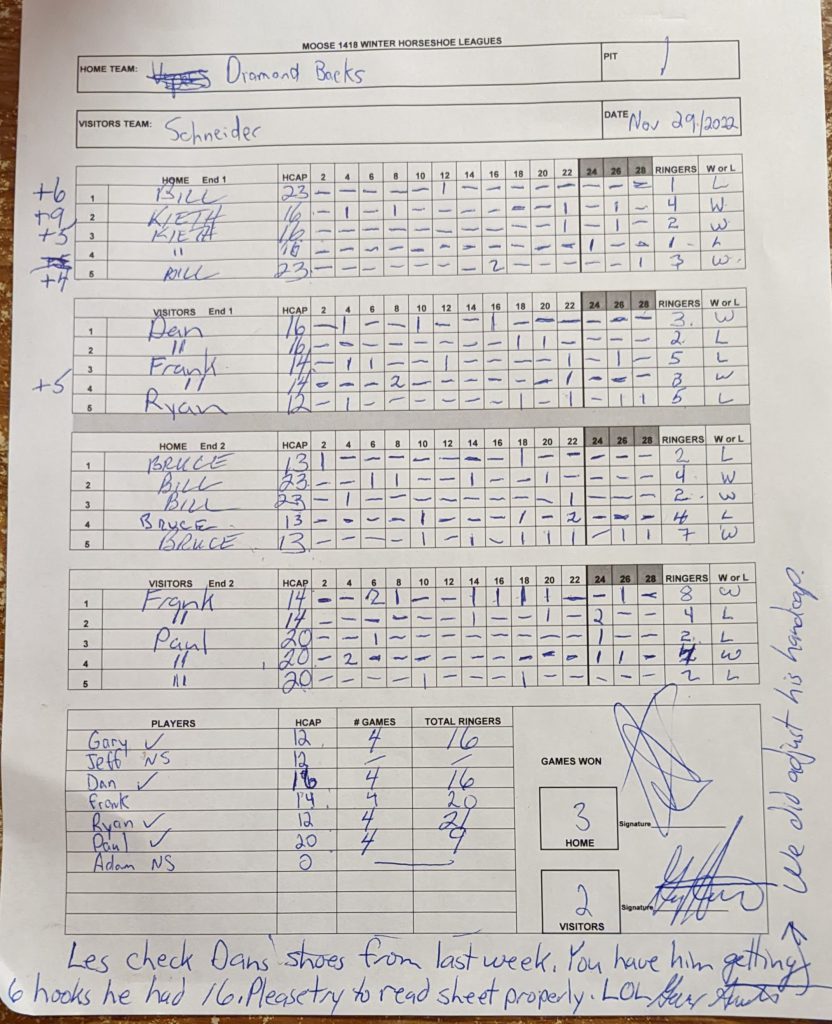 MOOSE 1418 WINTER HORSESHOE LEAGUES
HOME TEAM: Diamond Backs PIT 1
VISITORS TEAM: Schneider DATE Nov 29/2022
HOME End 1 HCAP 2 4 6 8 10 12 14 16 18 20 22 24 26 28 RINGERS W or L
+6 1 BILL 23 - - - - - 1 - - - - - - - - 1 L
+9 2 KIETH 16 - 1 - 1 - - - - - - 1 - 1 - 4 W
+5 3 KIETH 16 - - - - - - - - - - 1 - 1 - 2 W
4 " 16 - - - - - - - - - - - 1 - - 1 L
+4 5 BILL 23 - - - - - - - 2 - - - - - 1 3 W
VISITORS End 1 HCAP 2 4 6 8 10 12 14 16 18 20 22 24 26 28 RINGERS W or L
1 Dan 16 - 1 - - 1 - - 1 - - - - - - 3 W
2 " 16 - - - - - - - - 1 1 - - - - 2 L
3 Frank 14 - 1 1 - - 1 - - - - 1 - 1 - 5 L
+5 4 " 14 - - - 2 - - - - - - 1 - - - 3 W
5 Ryan 12 - 1 - - - - - - 1 - 1 - 1 1 5 L
HOME End 2 HCAP 2 4 6 8 10 12 14 16 18 20 22 24 26 28 RINGERS W or L
1 BRUCE 13 1 - - - - - - - 1 - - - - - 2 L
2 BILL 23 - - 1 1 - - 1 - - 1 - - - - 4 W
3 BILL 23 - 1 - - - - - - - - 1 - - - 2 W
4 BRUCE 13 - - - - 1 - - - 1 - 2 - - - 4 L
5 BRUCE 13 - - - - 1 - 1 - 1 1 1 - 1 1 7 W
VISITORS End 2 HCAP 2 4 6 8 10 12 14 16 18 20 22 24 26 28 RINGERS W or L
1 Frank 14 - - 2 1 - - 1 1 1 1 - - 1 - 8 W
2 " 14 - - - - - - 1 - - 1 - 2 - - 4 L
3 Paul 20 - - 1 - - - - - - - - 1 - - 2 L
4 " 20 - 2 - - - - - - - - - 1 1 - 4 W
5 " 20 - - - - 1 - - - 1 - - - - - 2 L
PLAYERS HCAP # GAMES TOTAL RINGERS
Gary ✓ 12 4 16
Jeff NS 12 - -
Dan ✓ 16 4 16
Frank 14 4 20
Ryan ✓ 12 4 21
Paul ✓ 20 4 9
Adam NS 0
GAMES WON
3
HOME
Signature
2
VISITORS
Signature
Les check Dans shoes from last week. You have him getting
6 hooks he had 16. Please try to read sheet properly. LOL
→ We did adjust his handcap.